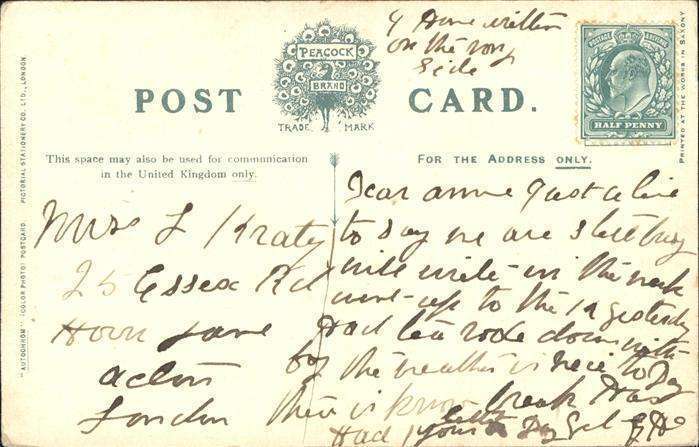 PEACOCK
BRAND
TRADE MARK
POST CARD.
HALF PENNY
PRINTED AT THE WORKS IN SAXONY
"AUTOCHROM" (COLOR PHOTO) POSTCARD. PICTORIAL STATIONERY CO. LTD., LONDON.
I have written
on the rong
side
This space may also be used for communication
in the United Kingdom only.
FOR THE ADDRESS ONLY.
Miss L Kraty
25 Essex Rd
Horn Lane
Acton
London
Dear Annie Just a line
to say we are still busy
will write in the week
went up to the yesterday
Had tea rode down with
by the weather is nice to Day
their is know break Has
Had your letter to Day